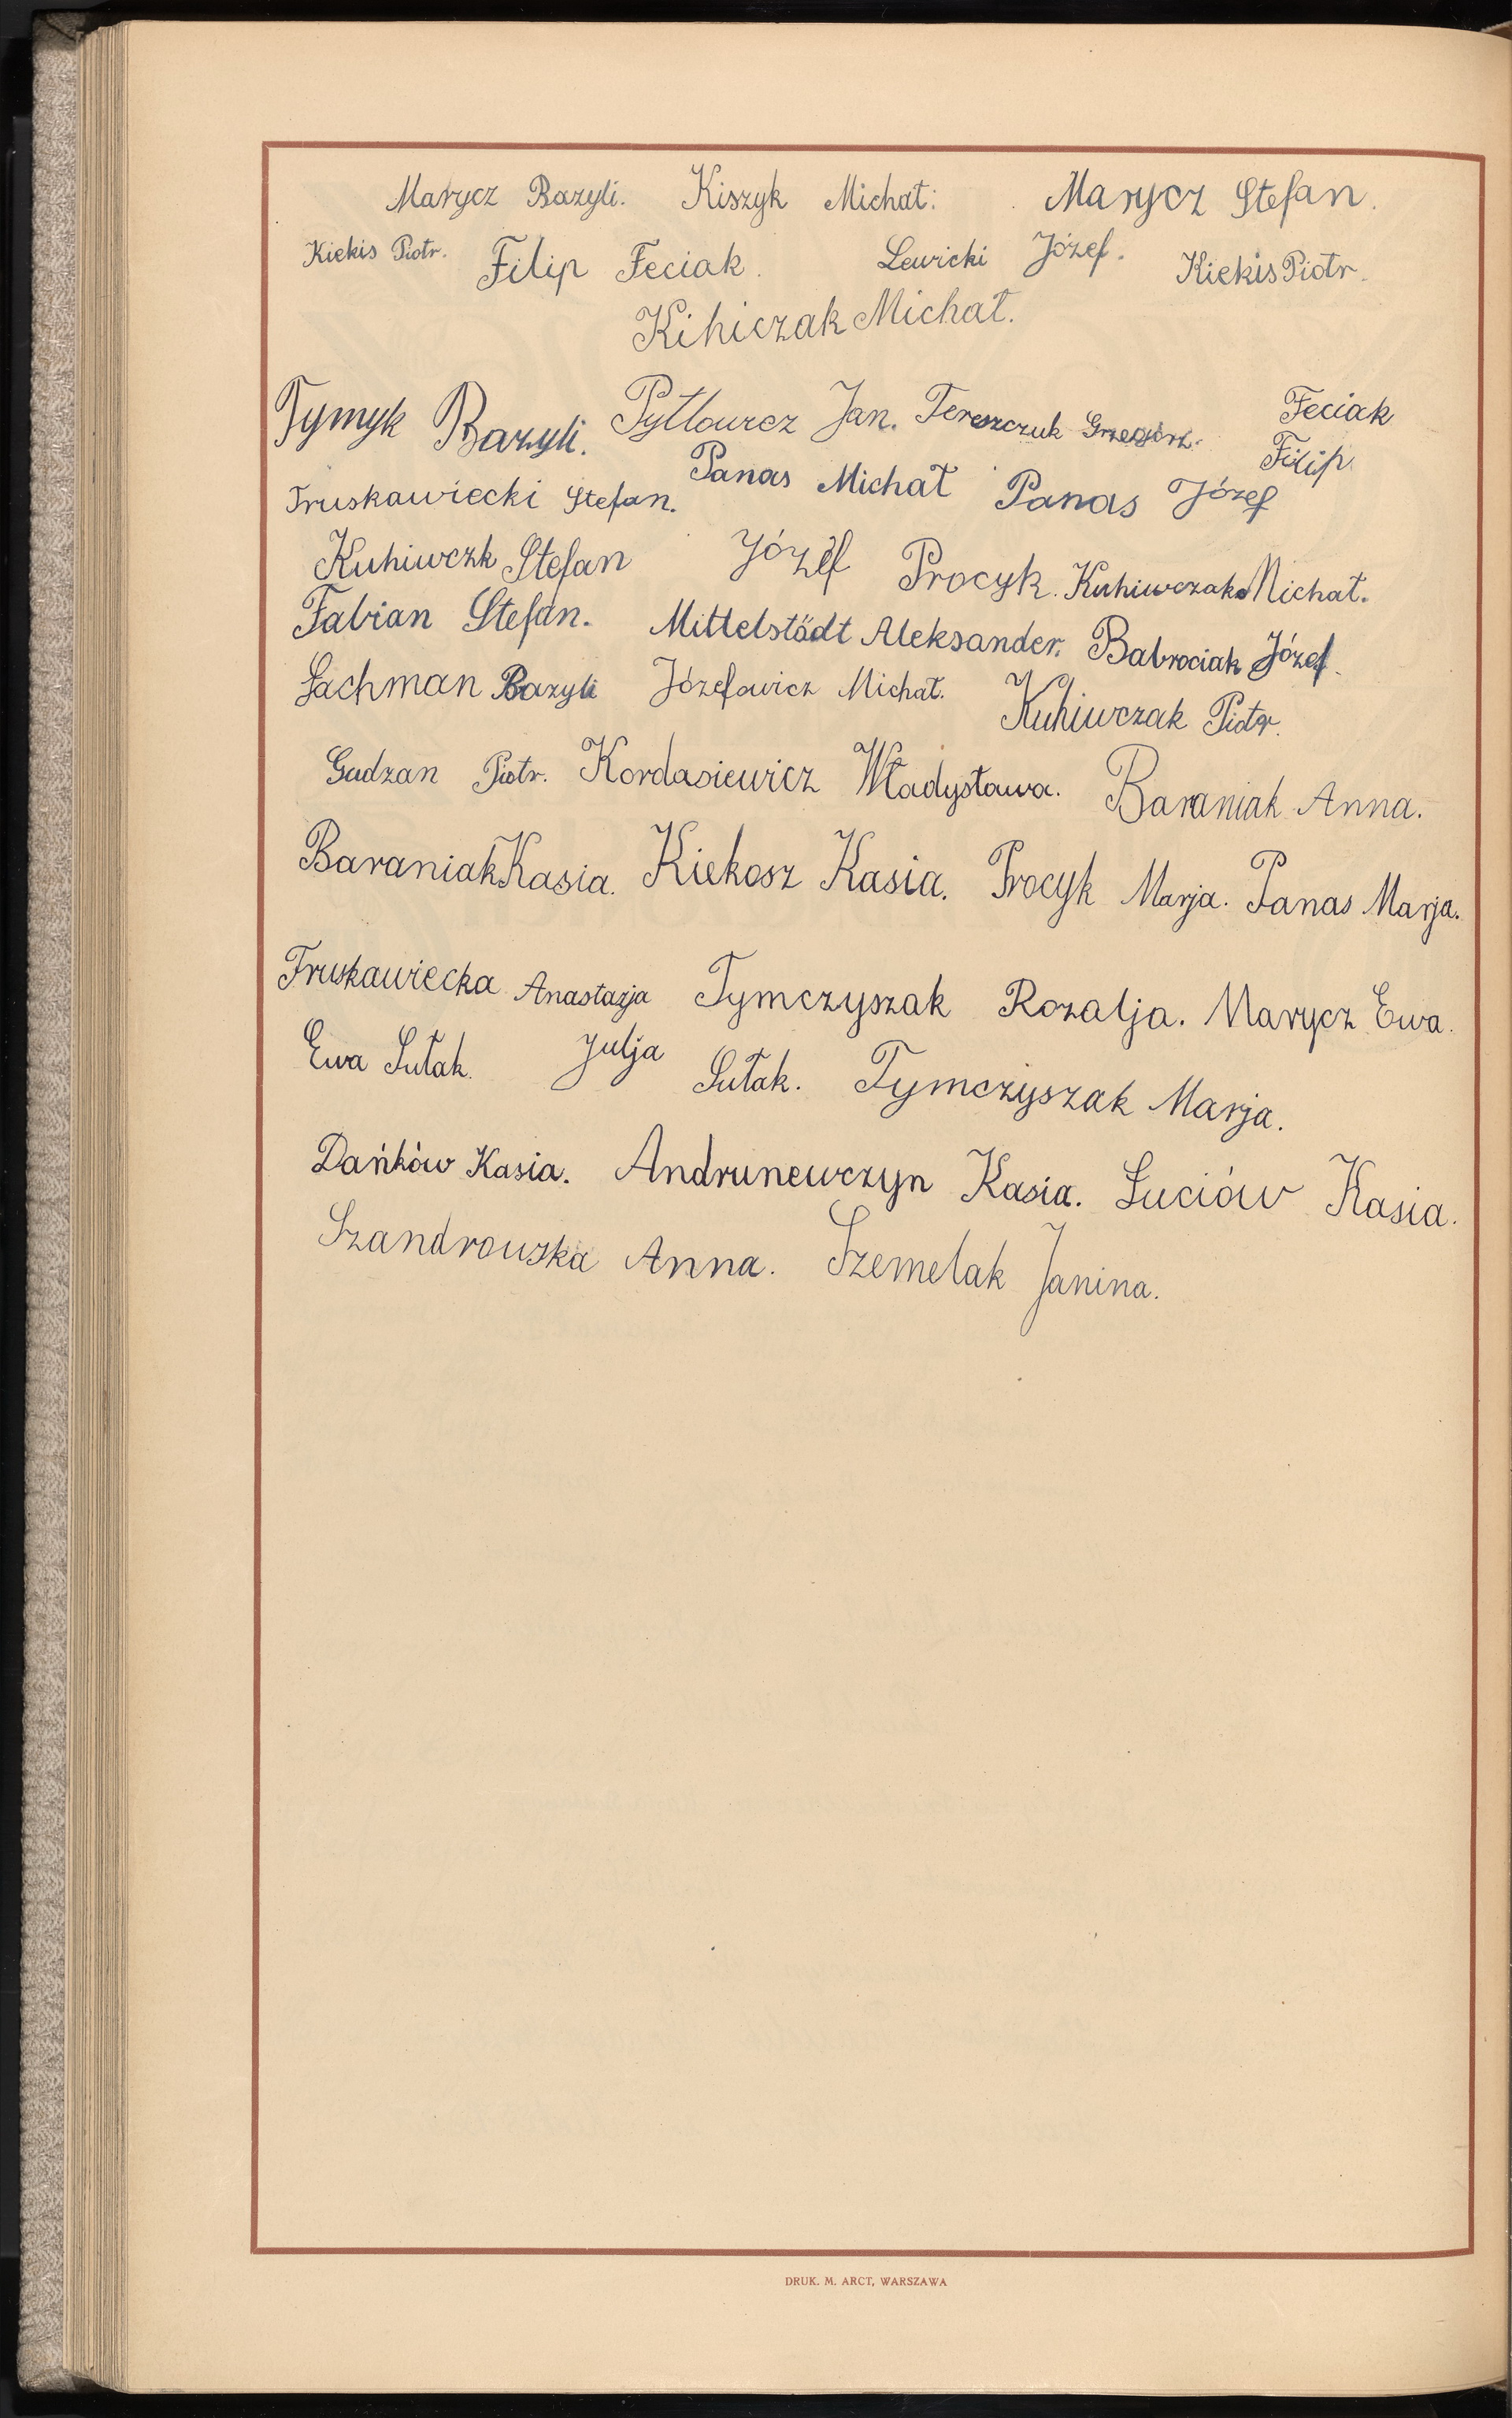 Marycz Bazyli. Kiszyk Michał. Marycz Stefan.
Kiekis Piotr. Filip Feciak. Lewicki Józef. Kiekis Piotr.
Kihiczak Michał.
Tymyk Bazyli. Pytlowcz Jan. Tereszczuk Grzegórz. Feciak
Filip.
Truskawiecki Stefan. Panas Michał Panas Józef
Kuhiwczk Stefan Józef Procyk. Kuhiwczak Michał.
Fabian Stefan. Mittelstädt Aleksander. Babrociak Józef.
Lachman Bazyli Józefowicz Michał. Kuhiwczak Piotr.
Gudzan Piotr. Kordasiewicz Władysława. Baraniak Anna.
Baraniak Kasia. Kiekosz Kasia. Procyk Marja. Panas Marja.
Truskawiecka Anastazja Tymczyszak Rozalja. Marycz Ewa.
Ewa Sutak. Julja Sutak. Tymczyszak Marja.
Dańków Kasia. Andrunewczyn Kasia. Luciów Kasia.
Szandrowska Anna. Szemelak Janina.
DRUK. M. ARCT, WARSZAWA